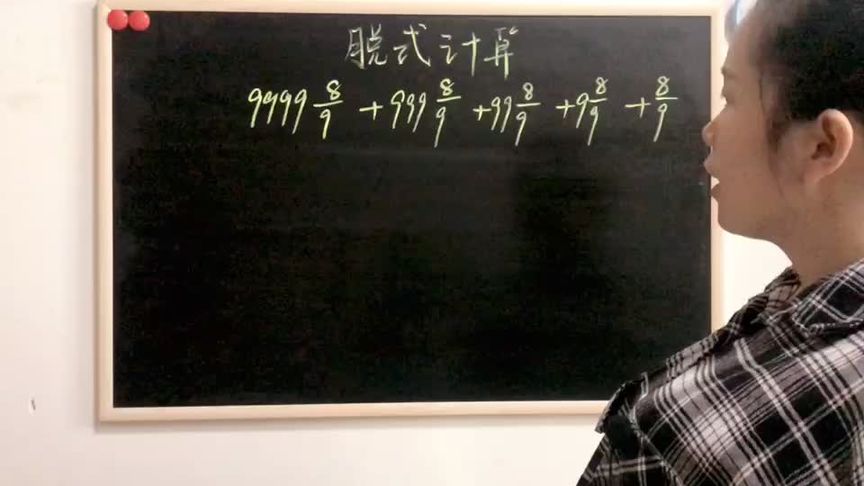 脱式计算
9999 8/9 + 999 8/9 + 99 8/9 + 9 8/9 + 8/9